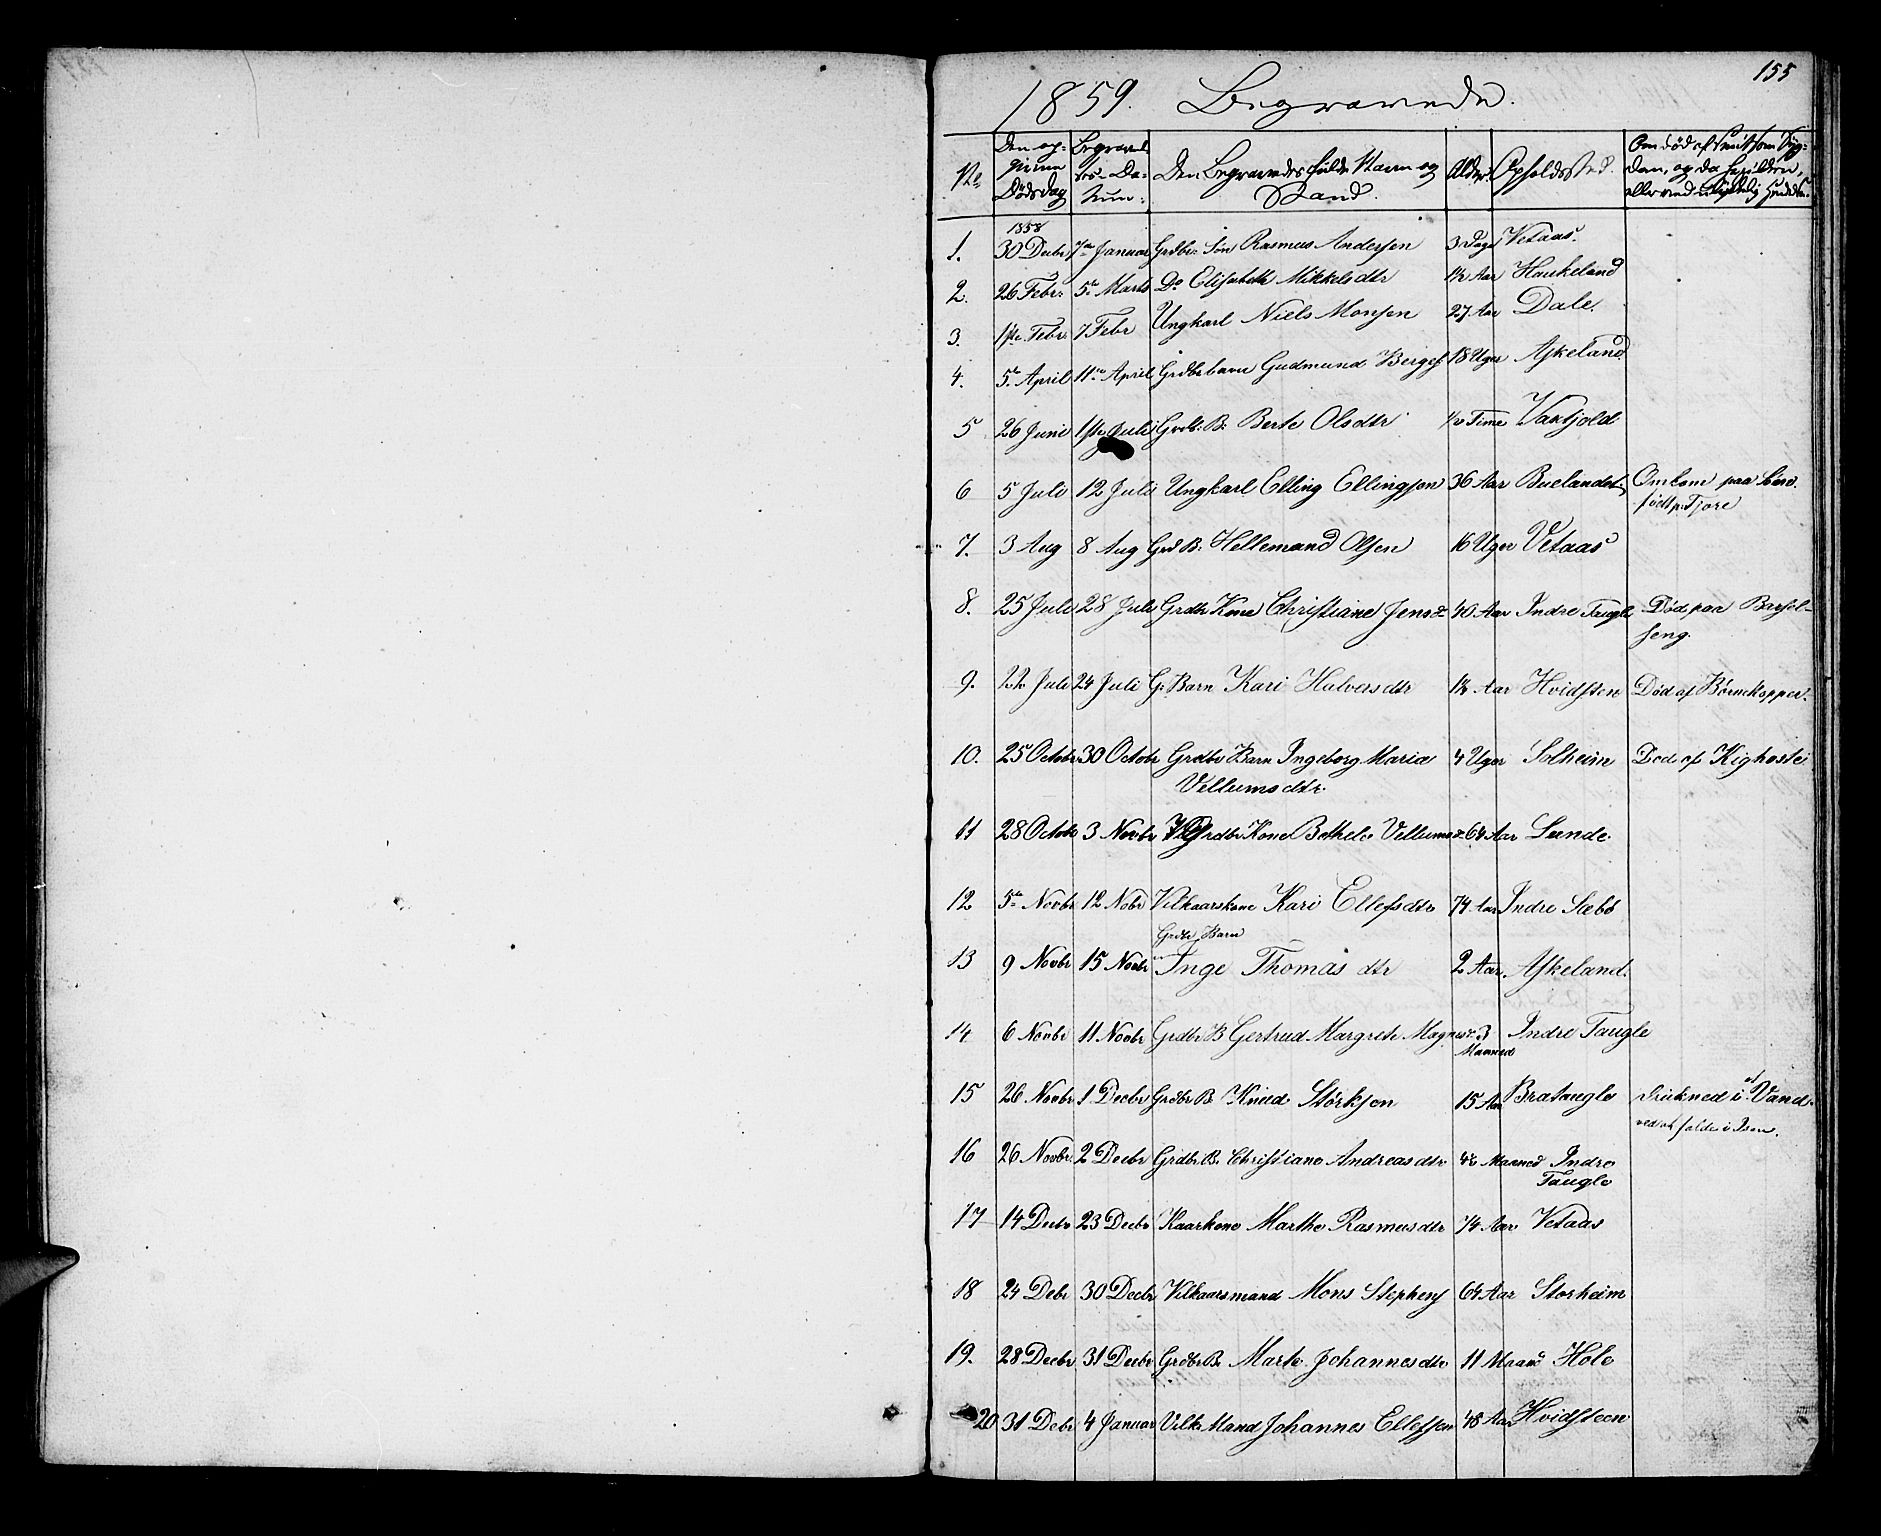 155
1859. Begravede.
No
Den op-
givne
Dødsdag
Begravel
ses-Da-
tum.
Den Begravedes fulde Navn og
Stand.
Alder.
Opholdssted.
Om død af smitsom Syg-
dom, og da hvilken,
eller ved ulykkelig Hændelse.
1858
1. 30 Decbr 7de Januar Grdbr. Søn Rasmus Andersen 3 Dage Vetaas.
2. 26 Febr. 5te Marts Do Elisabeth Mikkelsdtr 1½ Aar Haukeland
3. 1ste Febr. 7 Febr Ungkarl Niels Monsen 27 Aar Dale.
4. 5te April 11te April Grdbrbarn Gudmund Bergs 18 Uger Askeland
5 26 Juni 1ste Juli Grdb: B: Berte Olsdtr ½ Time Vaktjold
6 5 Juli 12 Juli Ungkarl Elling Ellingsen 36 Aar Buelandet Omkom paa Søen.
født p. Fjore
7. 3 Aug 8 Aug Grd B: Hellemand Olsen 16 Uger Vetaas
8. 25 Juli 28 Juli Grdbr Kone Christiane Jensd. 40 Aar Indre Taugle Død paa Barsel-
seng.
9. 22 Juli 24 Juli G. Barn Kari Halvorsdtr 1½ Aar Hvidsten Død af Børnekopper.
10. 25 Octobr 30 Octobr Grdbr Barn Ingeborg Maria 4 Uger Solheim Død af Kighoste
Vellumsdtr.
11 28 Octobr 3 Novbr Grdbr Kone Bethele Vellumsd. 64 Aar Lunde.
12 5te Novbr 12 Nobr Vilkaarskone Kari Ellefsdtr 74 Aar Indre Sæbø
Grdbr Barn
13 9 Novbr 15 Novbr Inge Thomas dtr 2 Aar. Askeland.
14 6 Novbr 11 Novbr Grdbr B Gertrud Margrete Magnesd. 3 Indre Taugle
Maaned
15 26 Novbr 1 Decbr Grdbr B. Knud Størksen 15 Aar Brataugle Drukned i Vand
ved at falde i Isen.
16 26 Novbr. 2 Decbr Grdbr. B. Christiane Andreasdtr 4½ Maaned Indre
Taugle
17 14 Decbr 23 Decbr Kaarkone Marthe Rasmusdtr 74 Aar Vetaas
18 24 Debr 30 Decbr Vilkaarsmand Mons Stephens 64 Aar Storheim
19. 28 Decbr 31 Decbr Grdbr B. Marte Johannesdtr 11 Maand Hole
20 31 Debr 4 Januar Vilk. Mand Johannes Ellefsen 48 Aar Hvidsteen